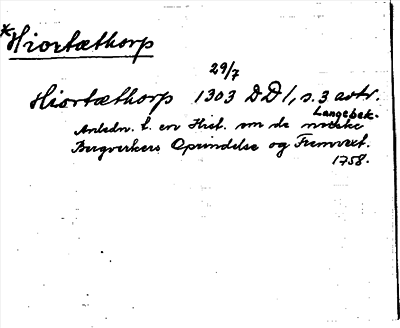 *Hiortæthorp
29/7
Hiortæthorp 1303 DD1, s. 3 avtr.
Langebek.
Anledn. t. en Hist. om de norske
Bergverkers Oprindelse og Fremvext.
1758.